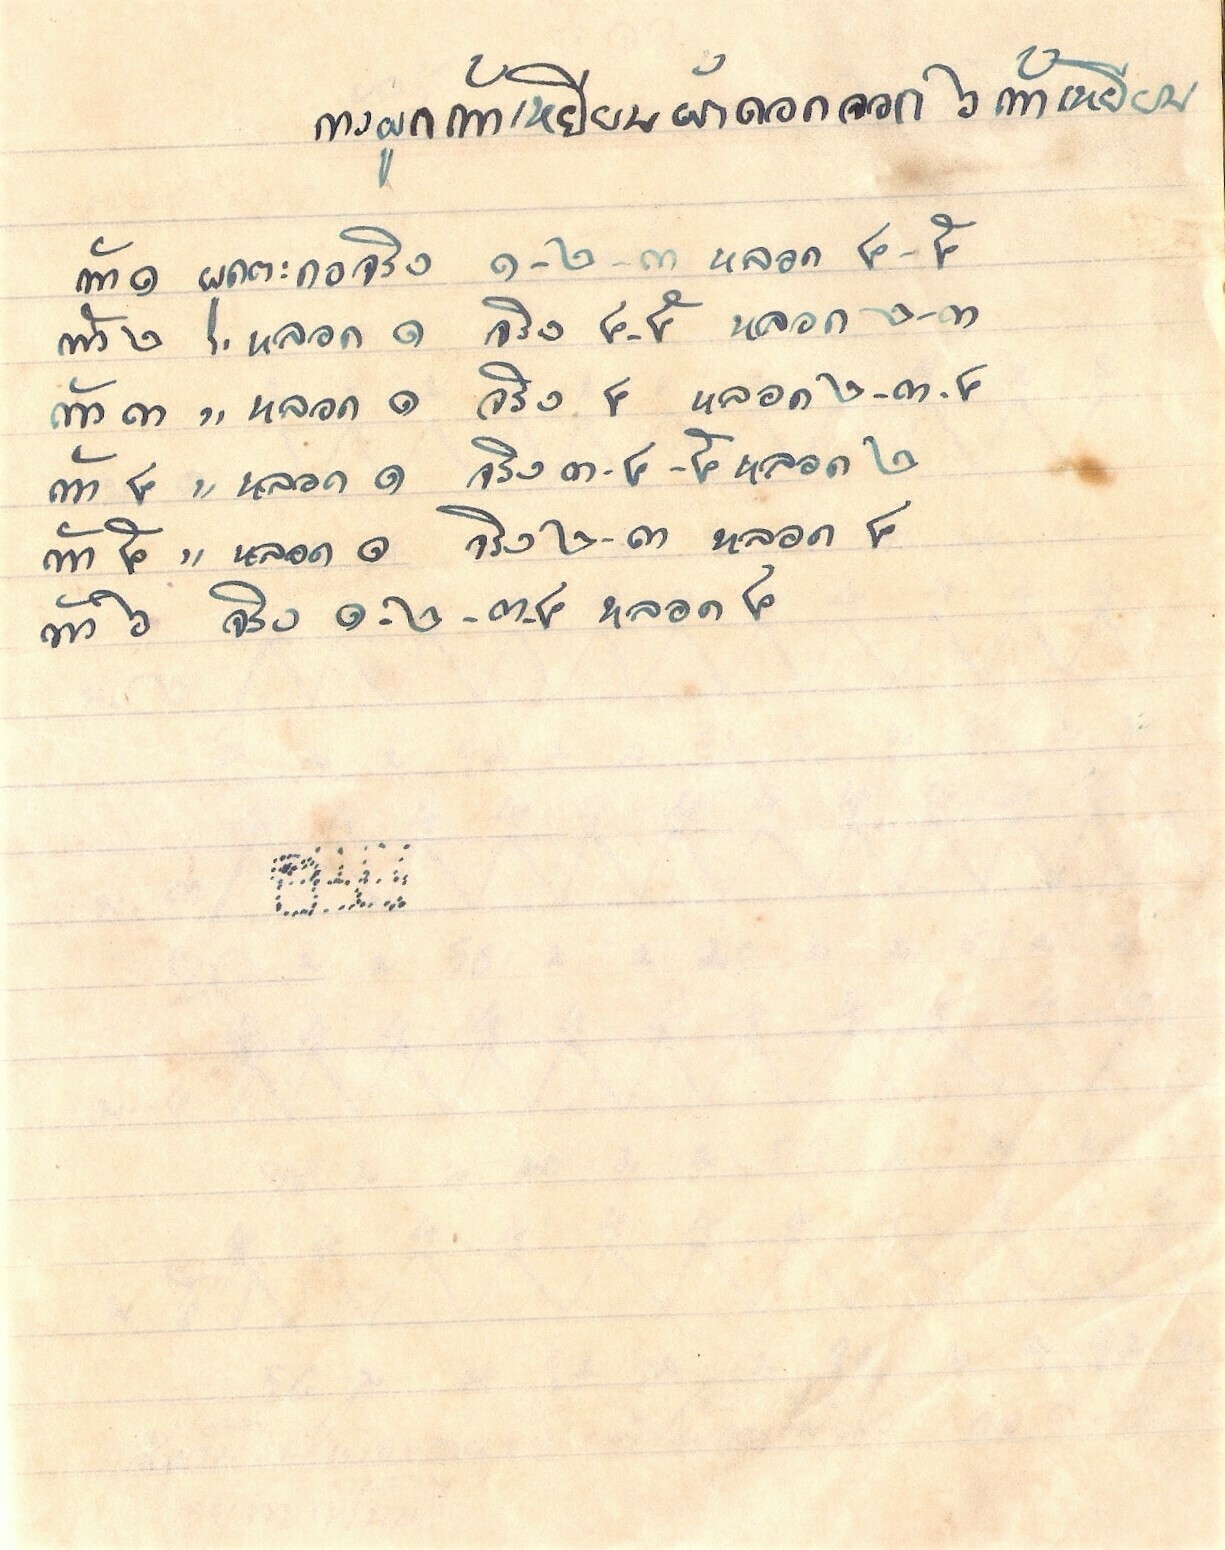 การผูกท้าเหยียบผ้าดอกจอก ๖ ท้าเหยียบ
ท้า ๑ ผูกตะกอจริง ๑-๒-๓ หลอก ๔-๕
ท้า ๒ " หลอก ๑ จริง ๔-๕ หลอก ๒-๓
ท้า ๓ " หลอก ๑ จริง ๔ หลอก ๒-๓-๔
ท้า ๔ " หลอก ๑ จริง ๓-๔-๕ หลอก ๒
ท้า ๕ " หลอก ๑ จริง ๒-๓ หลอก ๔
ท้า ๖ จริง ๑-๒-๓-๔ หลอก ๔